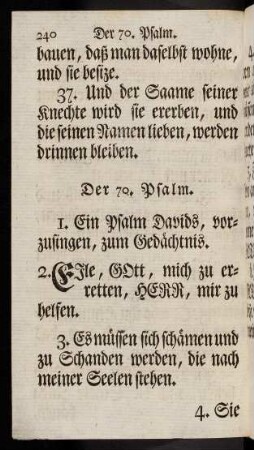 240 Der 70. Psalm.
bauen, daß man daselbst wohne,
und sie besize.
37. Und der Saame seiner
Knechte wird sie ererben, und
die seinen Namen lieben, werden
drinnen bleiben.
Der 70. Psalm.
1. Ein Psalm Davids, vor-
zusingen, zum Gedächtnis.
2. EIle, GOtt, mich zu er-
retten, HERR, mir zu
helfen.
3. Es müssen sich schämen und
zu Schanden werden, die nach
meiner Seelen stehen.
4. Sie